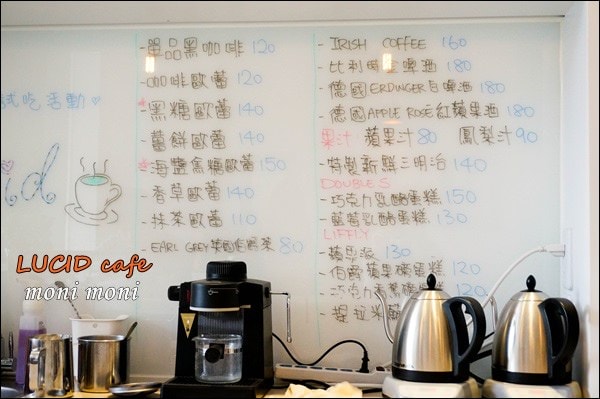 試吃活動
單品黑咖啡 120
咖啡歐蕾 120
黑糖歐蕾 140
薑餅歐蕾 140
海鹽焦糖歐蕾 150
香草歐蕾 140
抹茶歐蕾 110
EARL GREY 80
IRISH COFFEE 160
比利時 啤酒 180
德國 ERDINGER 白啤酒 180
德國 APPLE ROSÉ 紅蘋果酒 180
果汁 蘋果汁 80 鳳梨汁 90
特製新鮮三明治 140
DOUBLE S
巧克力乳酪蛋糕 150
藍莓乳酪蛋糕 130
LIFFLY
蘋果派 130
伯爵蘋果磅蛋糕 120
巧克力 磅蛋糕 120
提拉米
LUCID cafe
moni moni